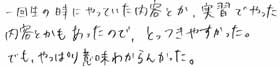 一回生の時にやっていた内容とか、実習でやった
内容とかもあったので、とっつきやすかった。
でも、やっぱり意味わからんかった。